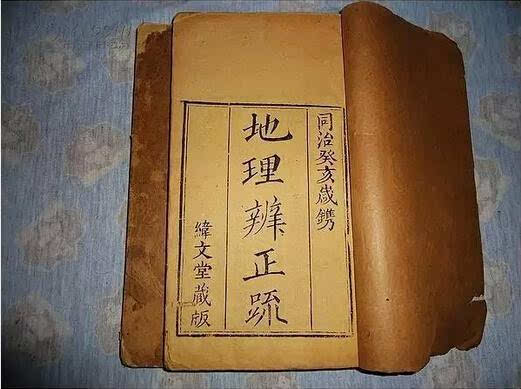 同治癸亥歲鐫
地理辨正疏
緯文堂藏版